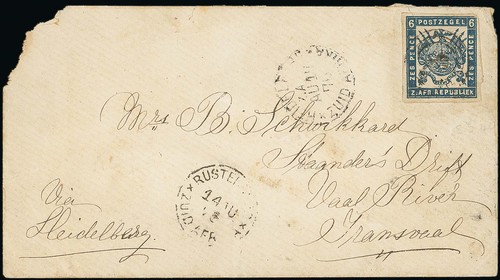 6 POSTZEGEL 6
ZES PENCE
ZES PENCE
Z. AFR. REPUBLIEK
Mrs B. Schwikkard
Staander's Drift
Vaal River
Transvaal
Via
Heidelberg.
ZUID
AFR
14